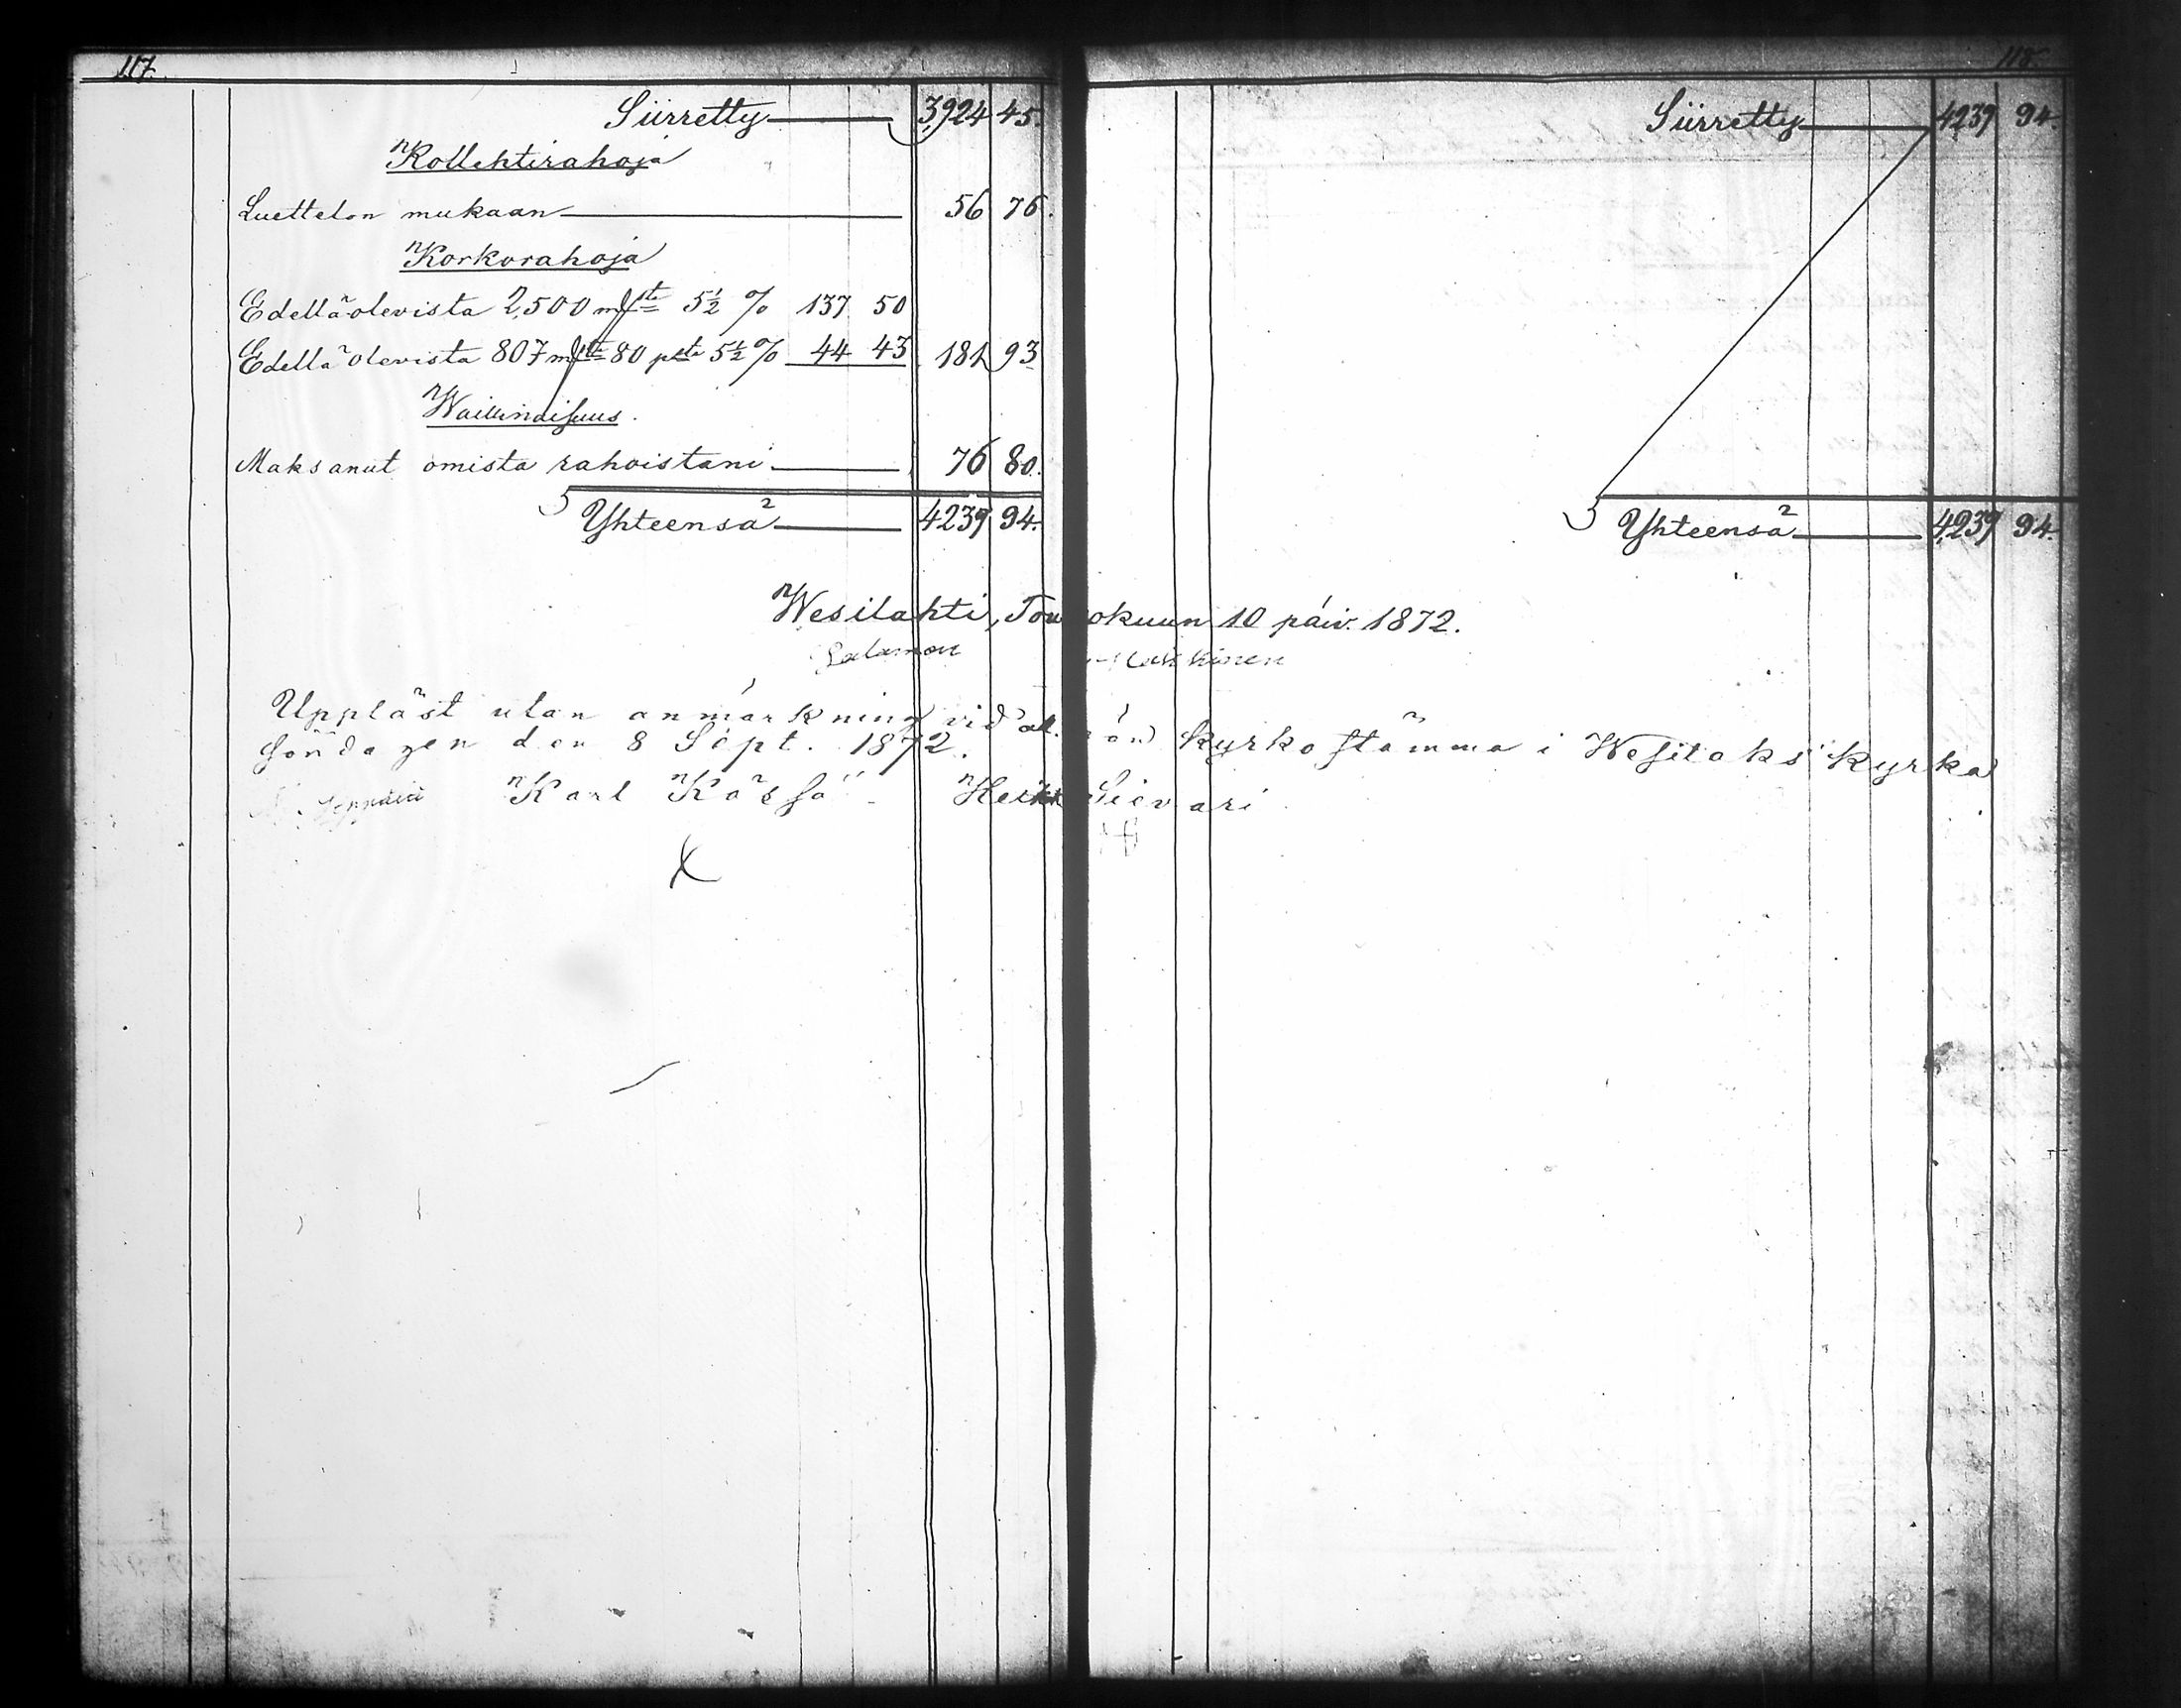 117.
Siirretty 3,924 45.
Kollehtirahoja
Luettelon mukaan 56 76.
Korkorahoja
Edellä olevista 2,500 mk:sta 5½ % 137 50
Edellä olevista 807 mk:sta 80 p:stä 5½ % 44 43 181 93
Waillinaisuus.
Maksanut omista rahoistani 76 80.
Yhteensä 4239 94.
118.
Siirretty 4239 94.
Yhteensä 4,239 94.
Wesilahti, Toukokuun 10 päiv. 1872.
Salamon
Uppläst utan anmärkning vid allmän kyrkostämma i Wesilaks kyrka
söndagen den 8 Sept. 1872.
Karl Kässä Heikk Sievari